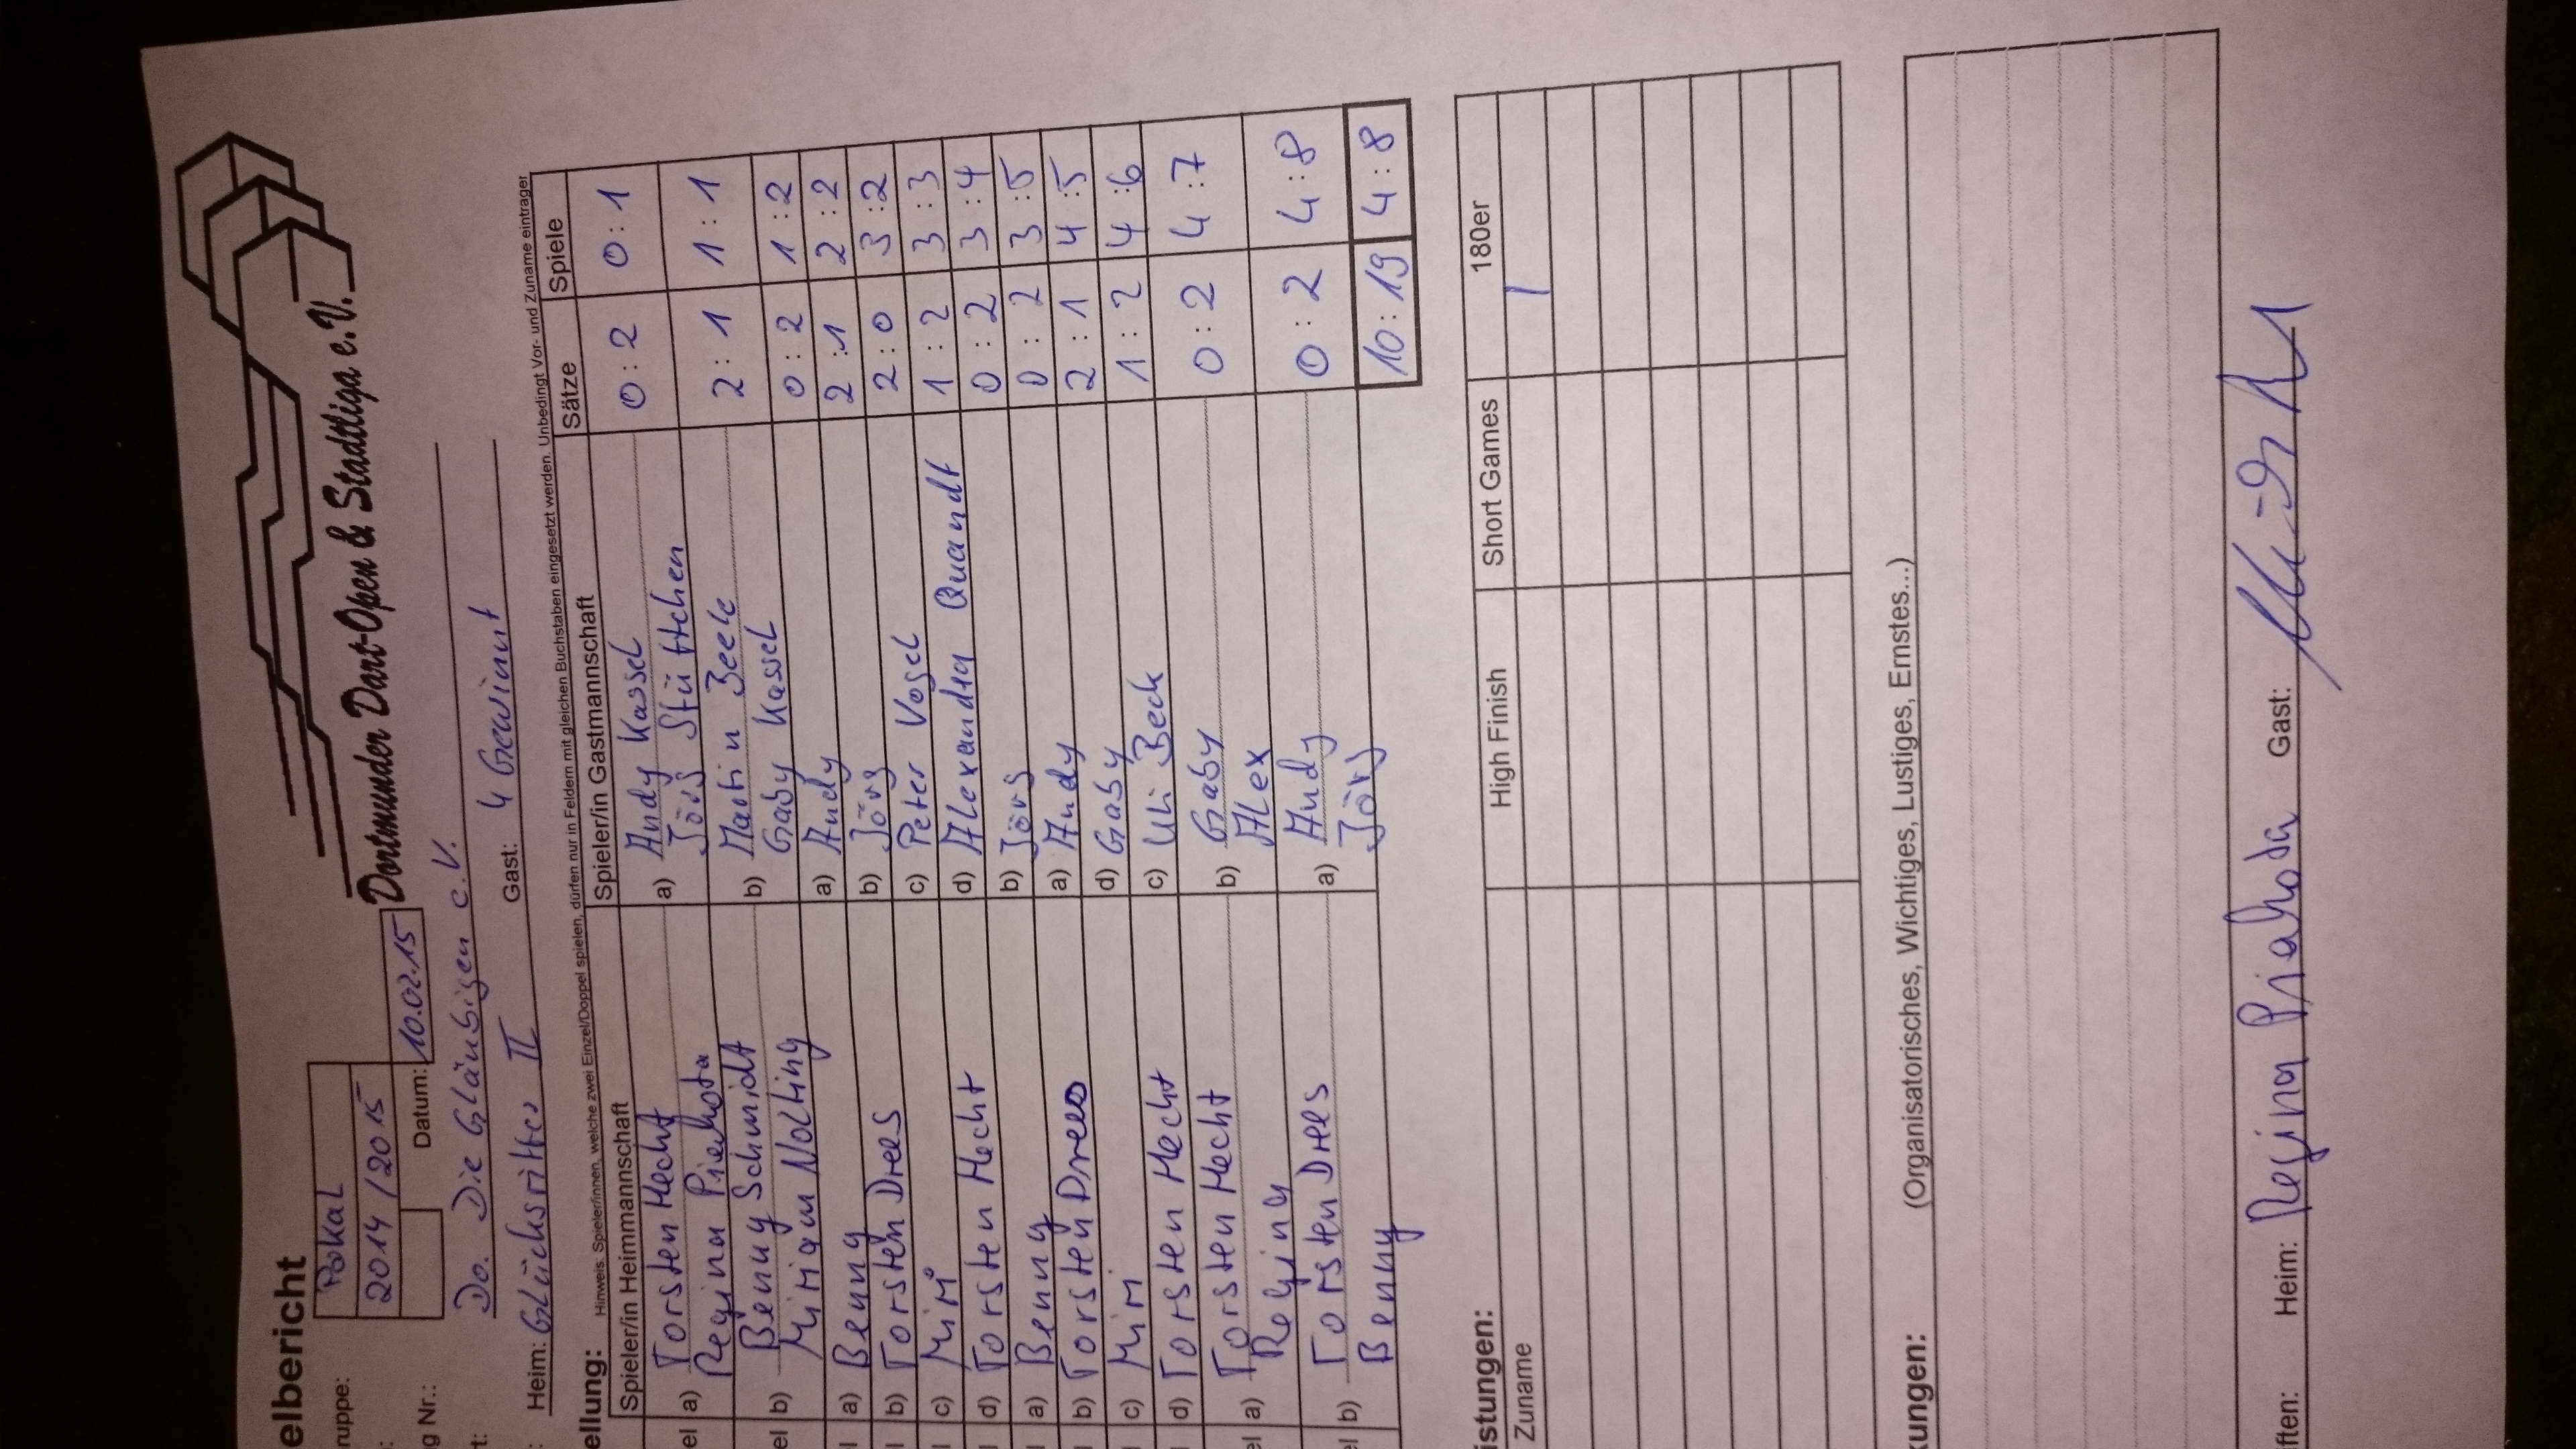 elbericht
Dortmunder Dart-Open & Stadtliga e.V.
ruppe: Pokal
: 2014/2015
g Nr.: Datum: 10.02.15
t: Do. Die Gläubigen e.V.
: Heim: Glücksritter II Gast: 4 Gewinnt
ellung: Hinweis. Spieler/innen, welche zwei Einzel/Doppel spielen, dürfen nur in Feldern mit gleichen Buchstaben eingesetzt werden. Unbedingt Vor- und Zuname eintrager
Spieler/in Heimmannschaft Spieler/in Gastmannschaft Sätze Spiele
el a) Torsten Hecht a) Andy Kassel 0 : 2 0 : 1
Regina Piehota Jörg Stüttchen
el b) Benny Schmidt b) Martin Beele 2 : 1 1 : 1
Miriam Nolting Gaby Kassel
l a) Benny a) Andy 0 : 2 1 : 2
l b) Torsten Drees b) Jörg 2 : 1 2 : 2
l c) Miri c) Peter Vogel 2 : 0 3 : 2
l d) Torsten Hecht d) Alexandra Quandt 1 : 2 3 : 3
l a) Benny b) Jörg 0 : 2 3 : 4
l b) Torsten Drees a) Andy 0 : 2 3 : 5
l c) Miri d) Gaby 2 : 1 4 : 5
l d) Torsten Hecht c) Uli Beck 1 : 2 4 : 6
el a) Torsten Hecht b) Gaby 0 : 2 4 : 7
Regina Alex
el b) Torsten Drees a) Andy 0 : 2 4 : 8
Benny Jörg
10 : 19 4 : 8
istungen:
Zuname High Finish Short Games 180er
kungen: (Organisatorisches, Wichtiges, Lustiges, Ernstes...)
ften: Heim: Regina Gast: